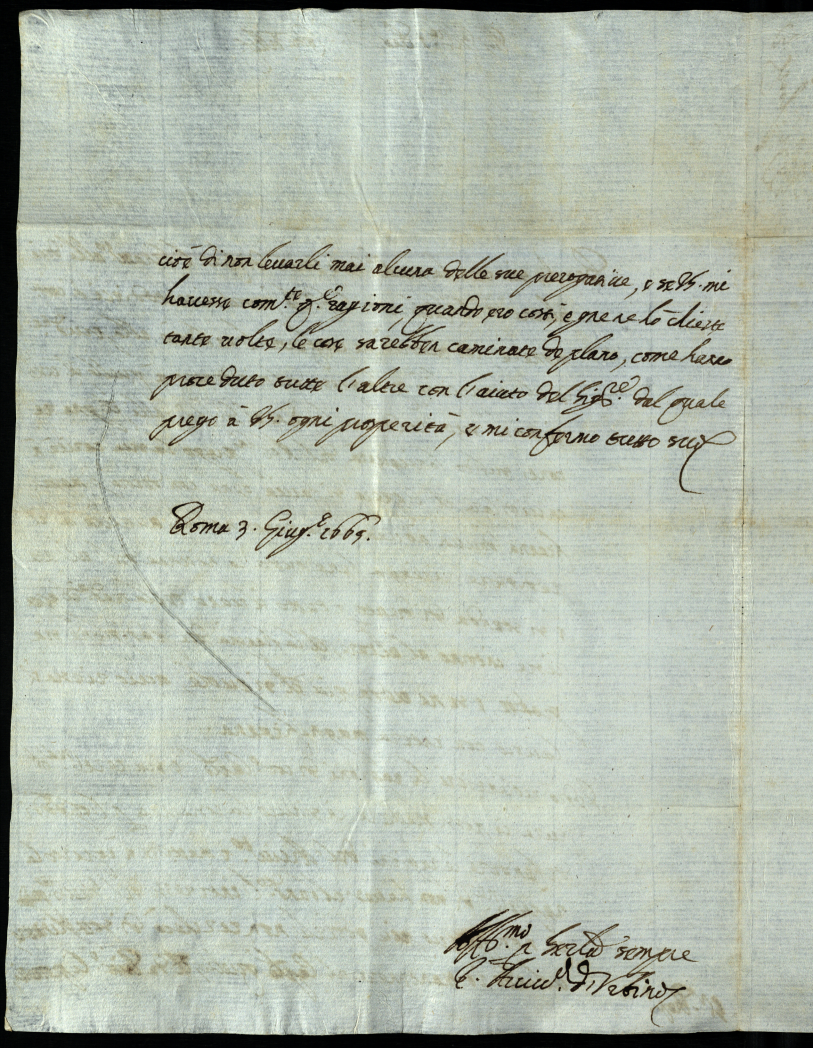 cioè di non levarli mai alcuna delle sue prerogative, e se VS. mi
havesse com.te q.e ragioni, quando ero costì, e gne ne hò chieste
tante volte, le cose sarebben caminate de plano, come hanno
proceduto tutte l'altre con l'aiuto del Sig.re dal quale
prego à VS. ogni prosperità, e mi confermo tutto suo
Roma 3. Giug.o 1665.
Aff.mo p Serla sempre
L'Arciv.o d'Urbino